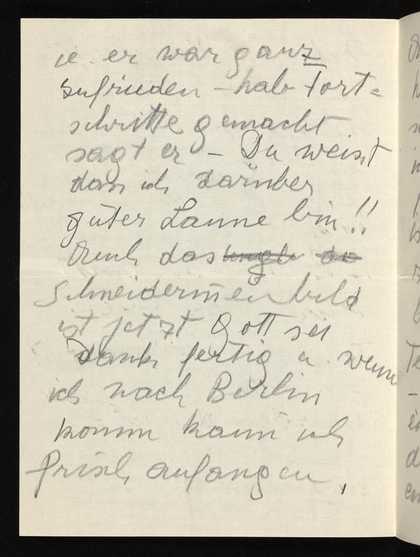 u. er war ganz
zufrieden – hab Fort=
schritte gemacht
sagt er – Du weisst
dass ich darüber
guter Laune bin!!
Auch das
Schneiderinnenbild
ist jetzt Gott sei
Dank fertig u. wenn
ich nach Berlin
komm kann ich
frisch anfangen,